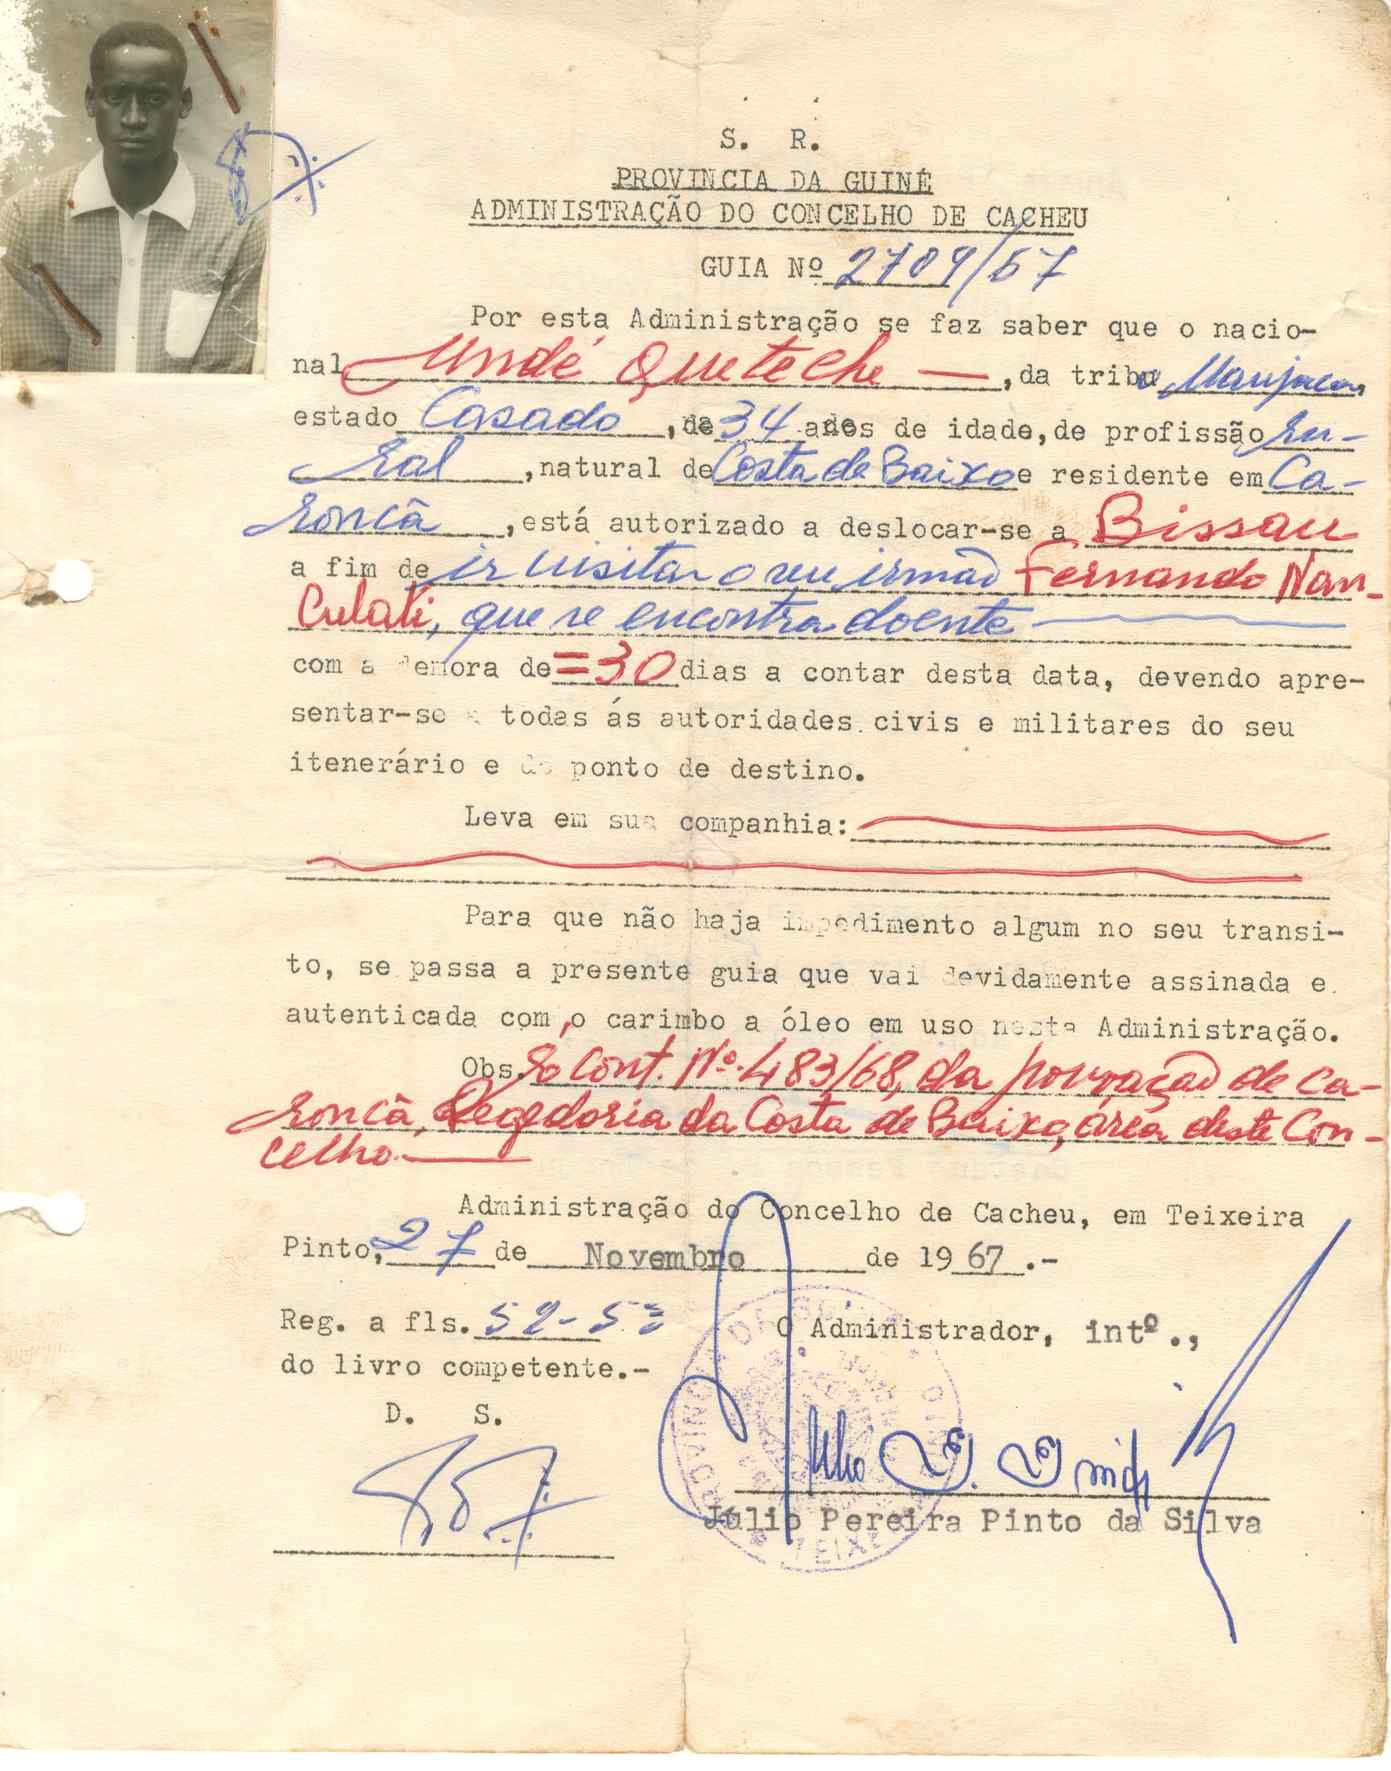 S. R.
PROVINCIA DA GUINÉ
ADMINISTRAÇÃO DO CONCELHO DE CACHEU
GUIA Nº 2709/67
Por esta Administração se faz saber que o nacio-
nal Undé Queteche —, da tribu Manjaca,
estado Casado, de 34 anos de idade, de profissão ru-
ral, natural de Costa de Baixo e residente em Ca-
roncã, está autorizado a deslocar-se a Bissau
a fim de ir visitar o seu irmão Fernando Nan-
Culati, que se encontra doente —
com a demora de =30 dias a contar desta data, devendo apre-
sentar-se a todas ás autoridades civis e militares do seu
itenerário e do ponto de destino.
Leva em sua companhia:
Para que não haja impedimento algum no seu transi-
to, se passa a presente guia que vai devidamente assinada e
autenticada com o carimbo a óleo em uso nesta Administração.
Obs. Cont. Nº. 483/68, da povoação de Ca-
roncã, Regedoria da Costa de Baixo, área deste Con-
celho.—
Administração do Concelho de Cacheu, em Teixeira
Pinto, 27 de Novembro de 1967.-
Reg. a fls. 52-53
do livro competente.-
O Administrador, intº.,
D. S.
Júlio Pereira Pinto da Silva